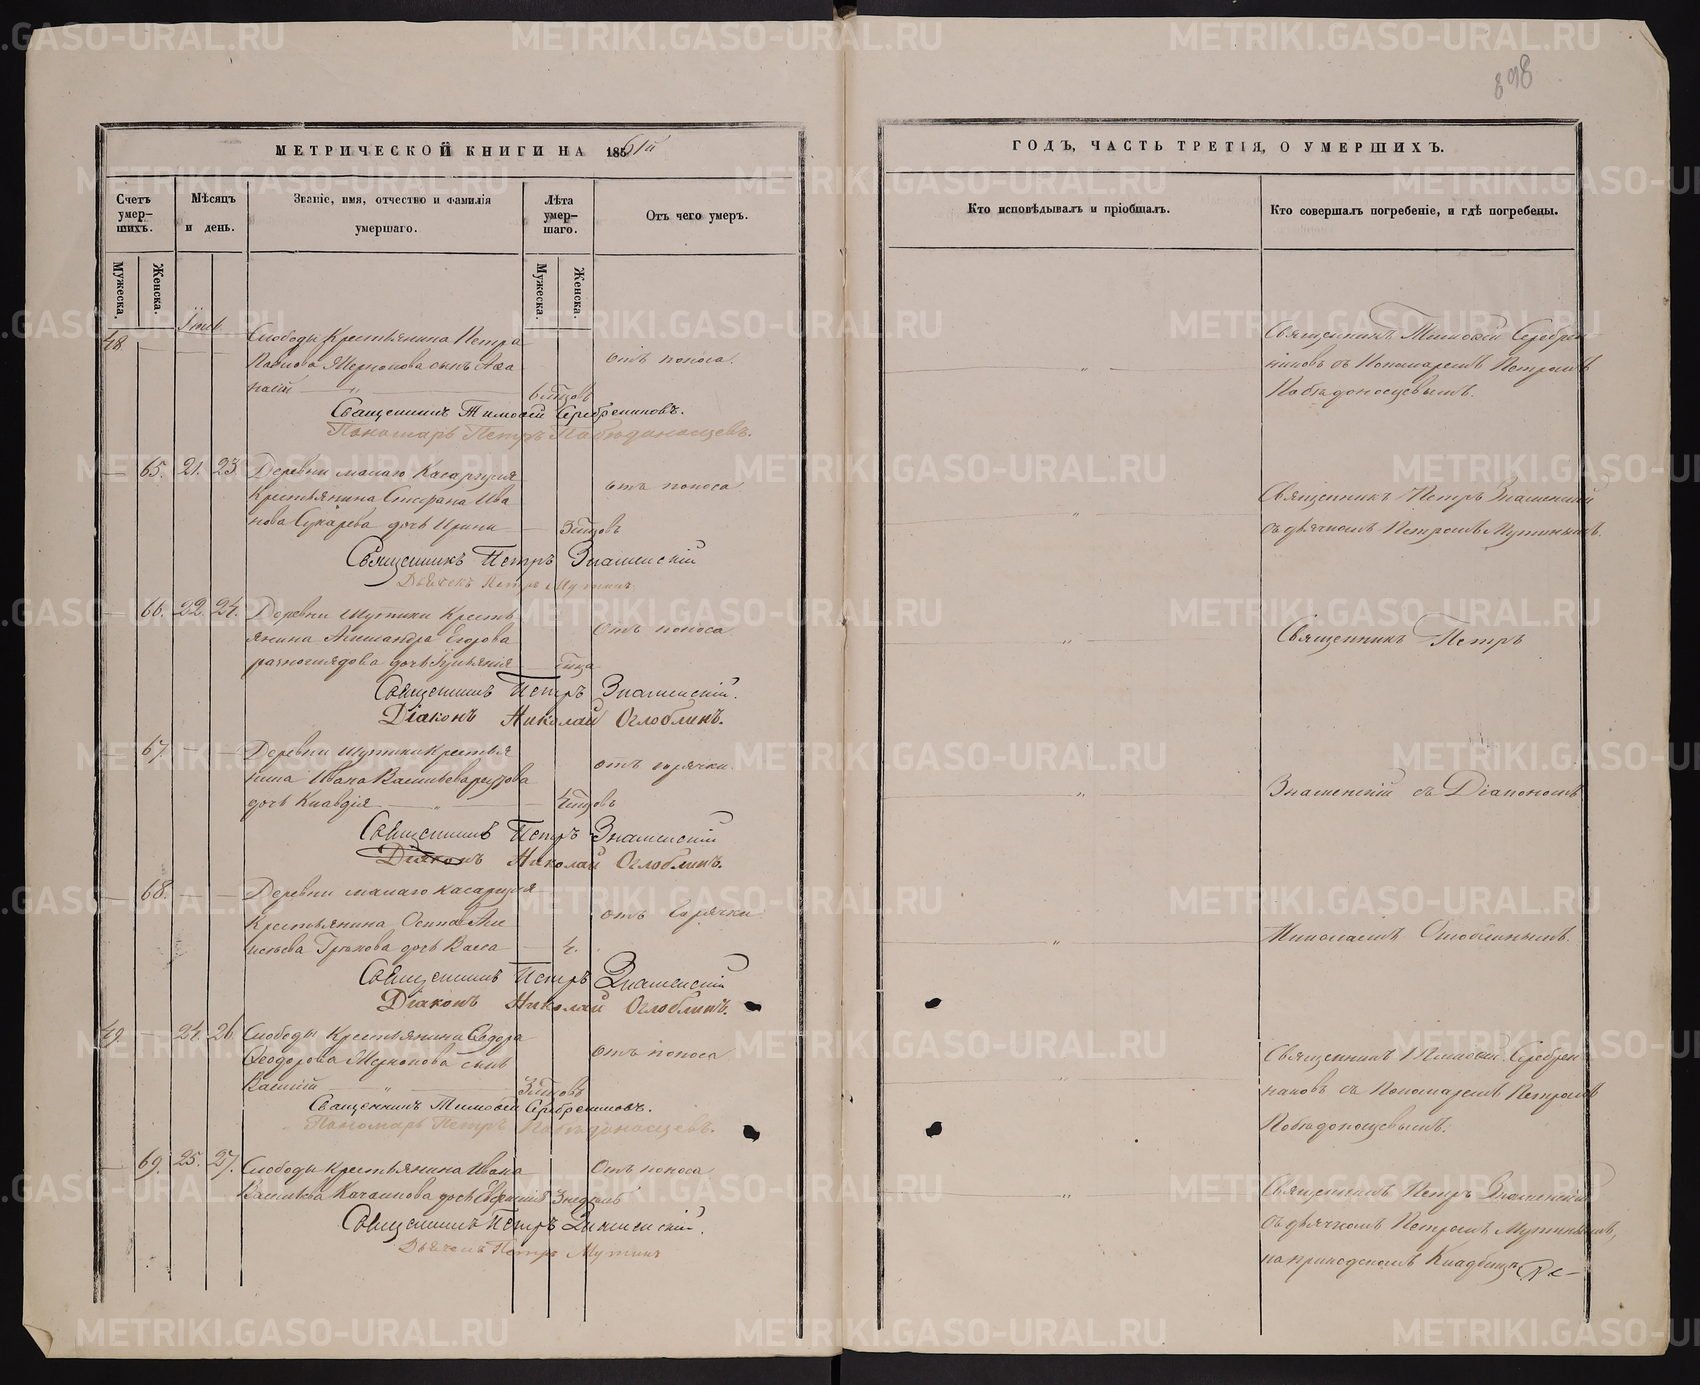 898
МЕТРИЧЕСКОЙ КНИГИ НА 1861й
Счетъ умер-шихъ.
Мѣсяцъ и день.
Званіе, имя, отчество и фамилія умершаго.
Лѣта умер-шаго.
Отъ чего умеръ.
Мужеска.
Женска.
Мужеска.
Женска.
48
Слободы Крестьянина Петра
сынъ Аѳа
насій
отъ поноса.
Священникъ Тимоѳей Серебрениковъ.
Пономарь Петръ Побѣдоносцевъ.
65. 21. 23. Деревни малаго Касаргуля
Крестьянина Стефана Ива
нова Сухарева дочь Ирина
отъ поноса
Священникъ Петръ Знаменскій
Дьячекъ Петръ Мутинъ
66. 22. 24. Деревни Шутики Кресть
янина Александра Егорова
дочь
отъ поноса
Священникъ Петръ Знаменскій.
Діаконъ Николай Оглоблинъ.
67 Деревни Шутики Крестья
нина Ивана
дочь Клавдія
отъ горячки.
Священникъ Петръ Знаменскій
Діаконъ Николай Оглоблинъ.
68. Деревни малаго Касаргуля
Крестьянина Осипа
дочь Васса 4.
отъ горячки
Священникъ Петръ Знаменскій
Діаконъ Николай Оглоблинъ.
49 24. 26 Слободы Крестьянина Ѳедора
Ѳеодорова сынъ
Василій
отъ поноса
Священникъ Тимоѳей Серебрениковъ.
Пономарь Петръ Побѣдоносцевъ.
69. 25. 27. Слободы Крестьянина Ивана
Васильева дочь 3 недѣль
Отъ поноса
Священникъ Петръ Знаменскій.
Дьячекъ Петръ Мутинъ
ГОДЪ, ЧАСТЬ ТРЕТІЯ, О УМЕРШИХЪ.
Кто исповѣдывалъ и пріобщалъ.
Кто совершалъ погребеніе, и гдѣ погребены.
Священникъ Тимоѳей Серебре-
никовъ съ Пономаремъ Петромъ
Побѣдоносцевымъ.
Священникъ Петръ Знаменскій
съ дьячкомъ Петромъ Мутинымъ.
Священникъ Петръ
Знаменскій съ Діакономъ
Николаемъ Оглоблинымъ.
Священникъ Тимоѳей Серебрен
никовъ съ Пономаремъ Петромъ
Побѣдоносцевымъ.
Священникъ Петръ Знаменскій
съ дьячкомъ Петромъ Мутинымъ,
на приходскомъ Кладбищѣ
METRIKI.GASO-URAL.RU